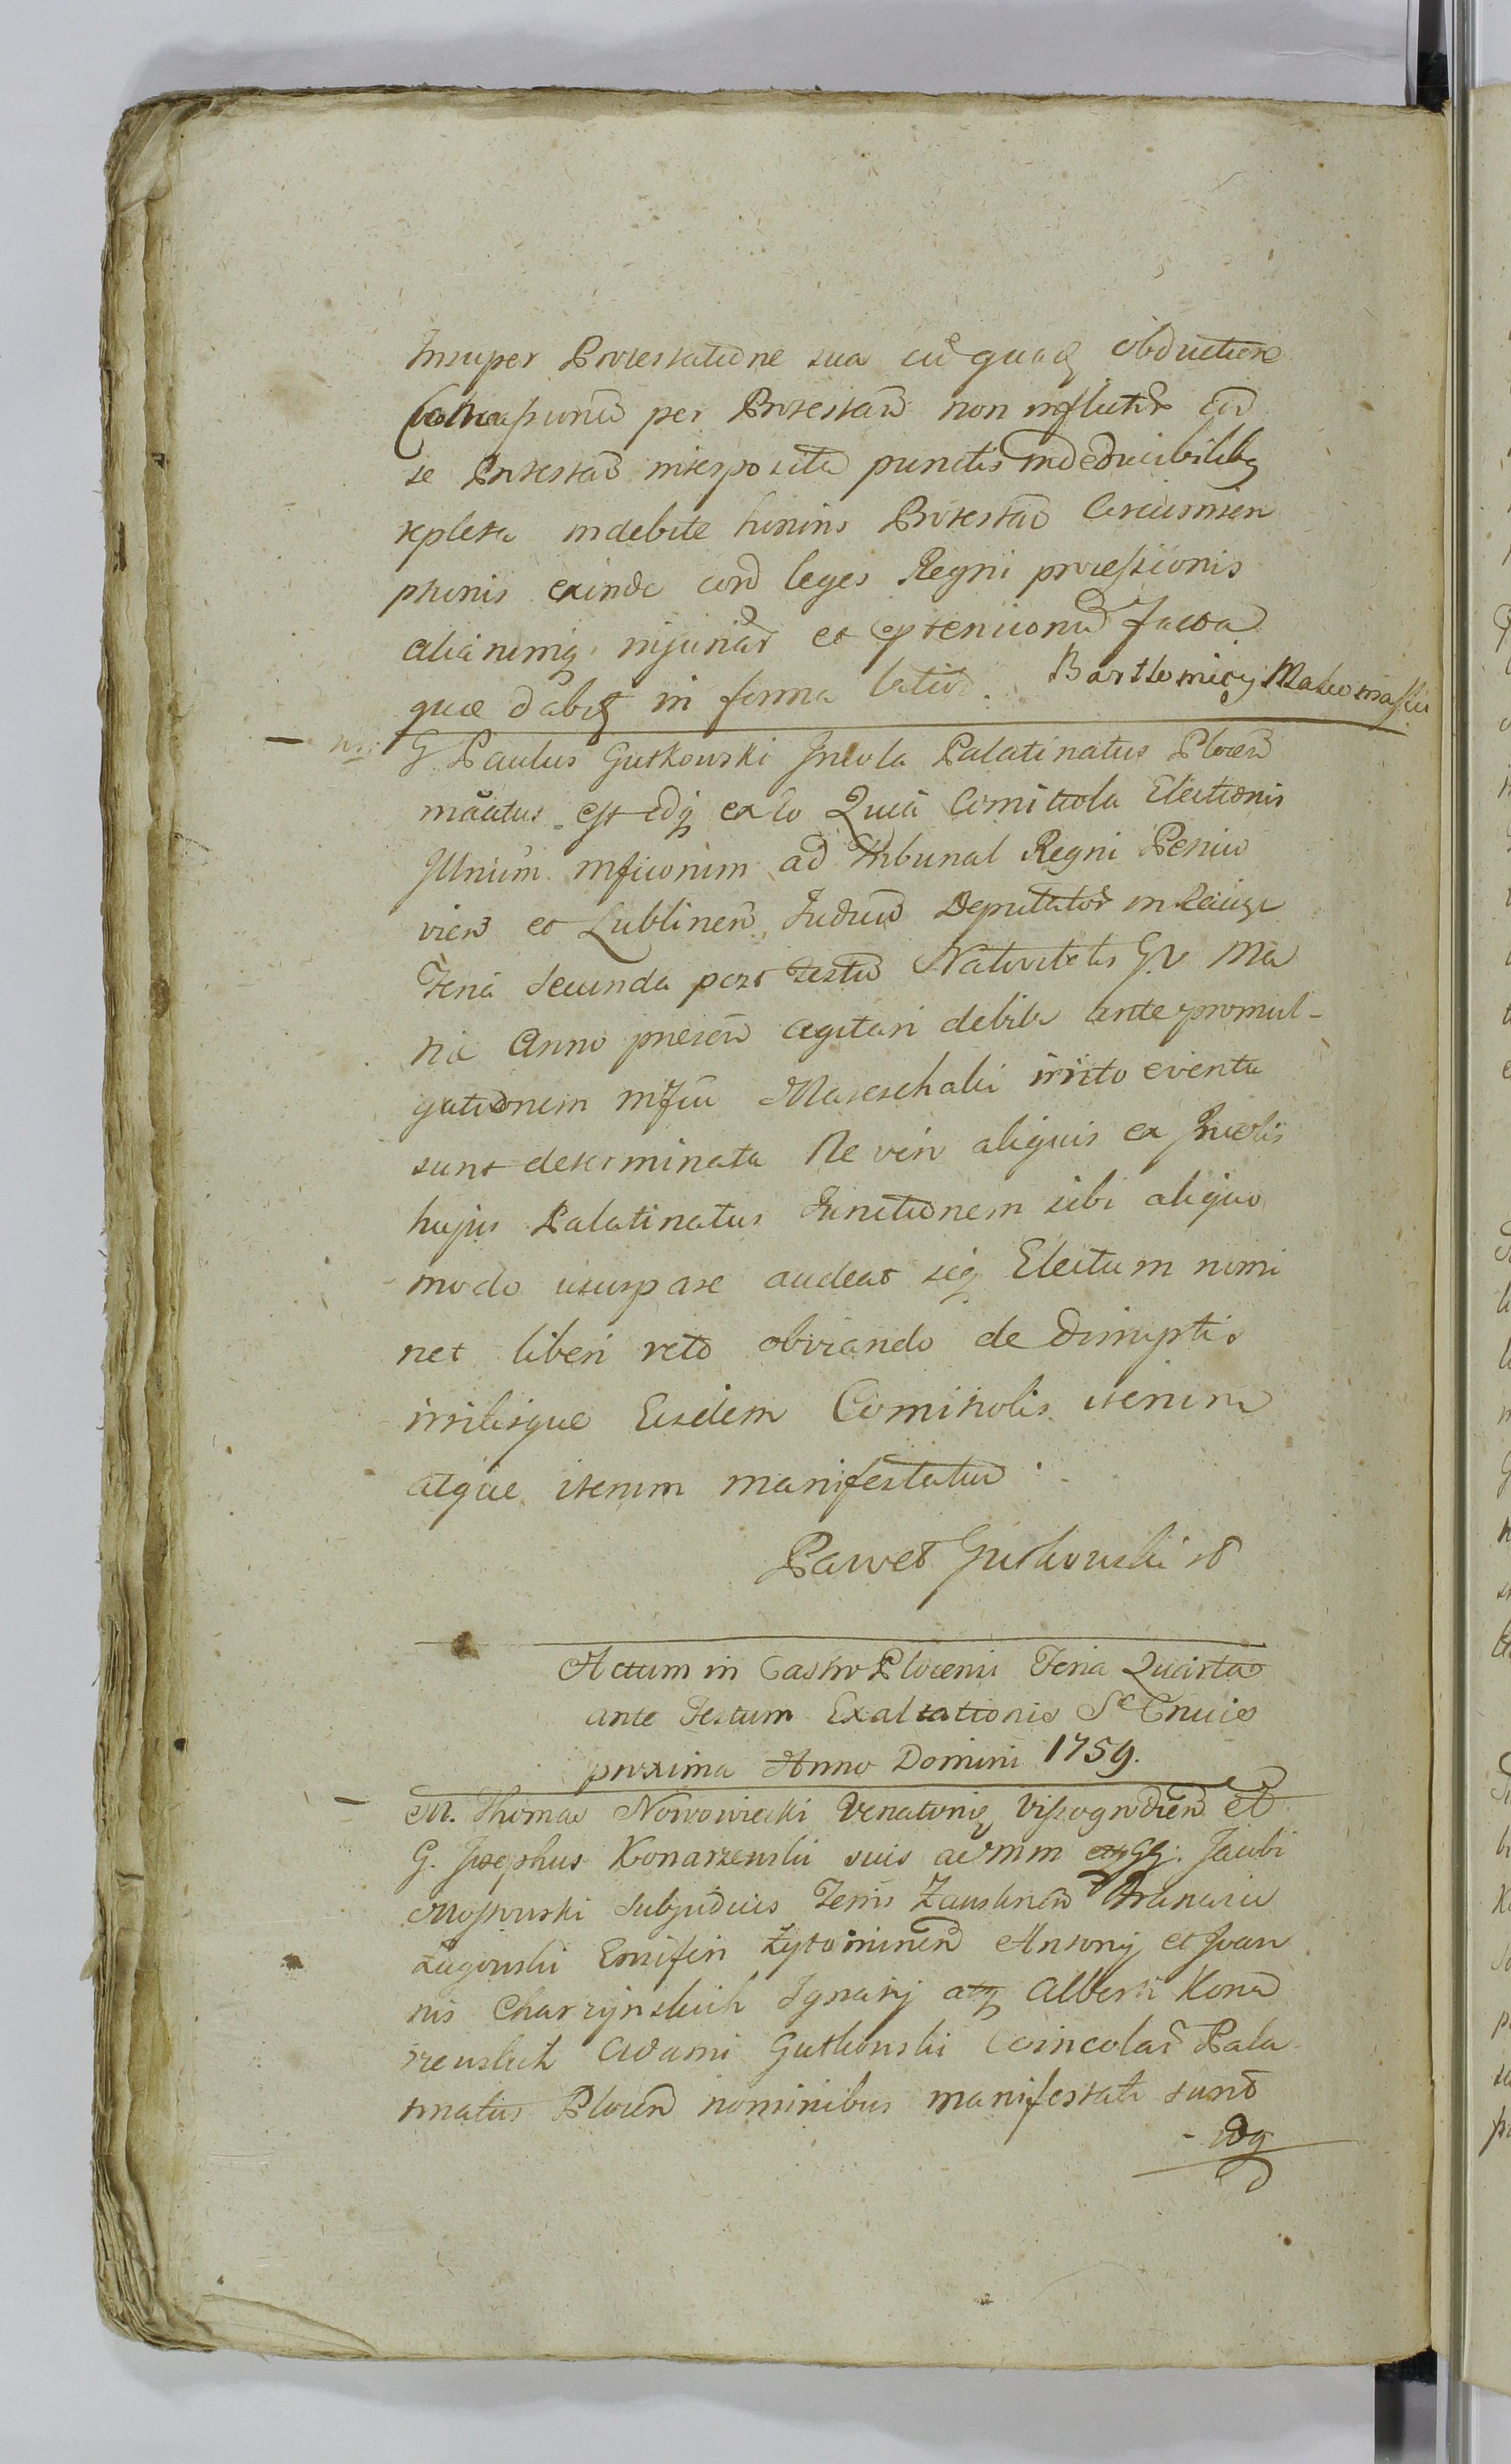 Insuper Protestatione sua cu quaq obductione
per Protestan non influtr con
se Protestan interposita punctis indeducibilibq
repleta indebite honins Protestan Circumscri
ptionis exinde con leges Regni processionis
alianimq injuriar et ptensionu facta
quae dabit in forma latior. Bartlomiey
G Paulus Gutkowski Incola Palatinatus Plocen
maatus est idq ex eo Quia Comitiola Electionis
Illnium mficorum ad Tribunal Regni Petrico
vien et Lublinen Judicu Deputator in
Feria Secunda post Festu Nativitatis BV Ma
ria Anno presen agitari debita ante promul-
gationem mfici Mareschalci irrito eventu
sunt determinata Ne vero aliquis ex Incolis
hujus Palatinatus Functionem sibi aliquo
modo usurpare audeat seq Electum nomi
net liberi veto obviando de diruptis
irritisque Eisdem Comitiolis iterum
atque iterum manifestatur
Paweł Gutkowski
Actum in Castro Plocensi Feria Quarta
ante Festum Exaltationis Se Crucis
proxima Anno Domini 1759.
M. Thomas Nowowieski Venatoriq Vissogrodien et
G. Josephus Konarzewski suis ac mm GG. Jacobi
Mossowski Subjudicis Terris Zawskrnen
Łagowski Ensiferi Zytominen Antonij et Joan
nis Charzynskich Ignatij atq Alberti Kona
rzewskich Adami Gutkowski Coincolar Pala
tinatus Plocen nominibus manifestati sunt
- idq